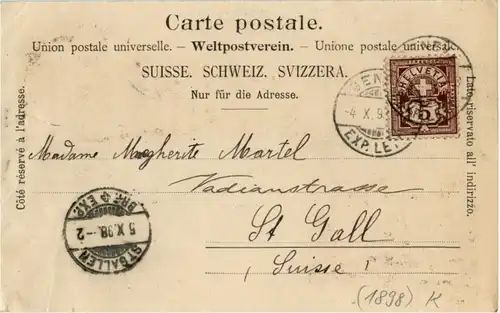 Carte postale.
Union postale universelle. – Weltpostverein. – Unione postale universale
SUISSE. SCHWEIZ. SVIZZERA.
Nur für die Adresse.
Côté réservé à l'adresse.
Lato riservato all' indirizzo.
HELVETIA
5
4 X. 9
EXP. LE
Madame Marguerite Martel
Vadianstrasse
St Gall
(Suisse)
ST. GALLEN
5 X. 98. – 2
BRF. EXP.
(1898) K